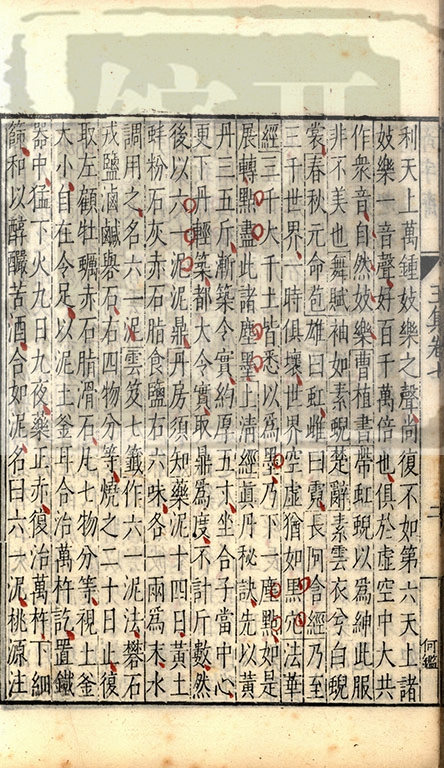 利天上萬鍾妓樂之聲尚復不如第六天上諸
妓樂一音聲好百千萬倍也俱於虛空中大共
作衆音自然妓樂曹植書帶虹蜺以爲紳此服
非不美也舞賦袖如素蜺楚辭素雲衣兮白蜺
裳春秋元命苞雄曰虹雌曰霓長阿含經乃至
三千世界一時俱壞世界空虛猶如點穴法華
經三千大千土皆悉以爲墨乃下一塵點如是
展轉點盡此諸塵墨上清經眞丹秘訣先以黃
丹三五斤漸築令實約厚五寸坐合子當中心
更下丹輕築都大令實取鼎爲度不計斤數然
後以六一泥泥鼎丹房須知藥泥十四日黃土
蚌粉石灰赤石脂食鹽右六味各一兩爲末水
調用之名六一泥雲笈七籤作六一泥法礬石
戎鹽滷鹹礜石右四物分等燒之二十日止復
取左顧牡蠣赤石脂滑石凡七物分等視土釜
大小自在令足以泥土釜耳合治萬杵訖置鐵
器中猛下火九日九夜藥正赤復治萬杵下細
篩和以醇釅苦酒合如泥名曰六一泥桃源注
二
何鑑